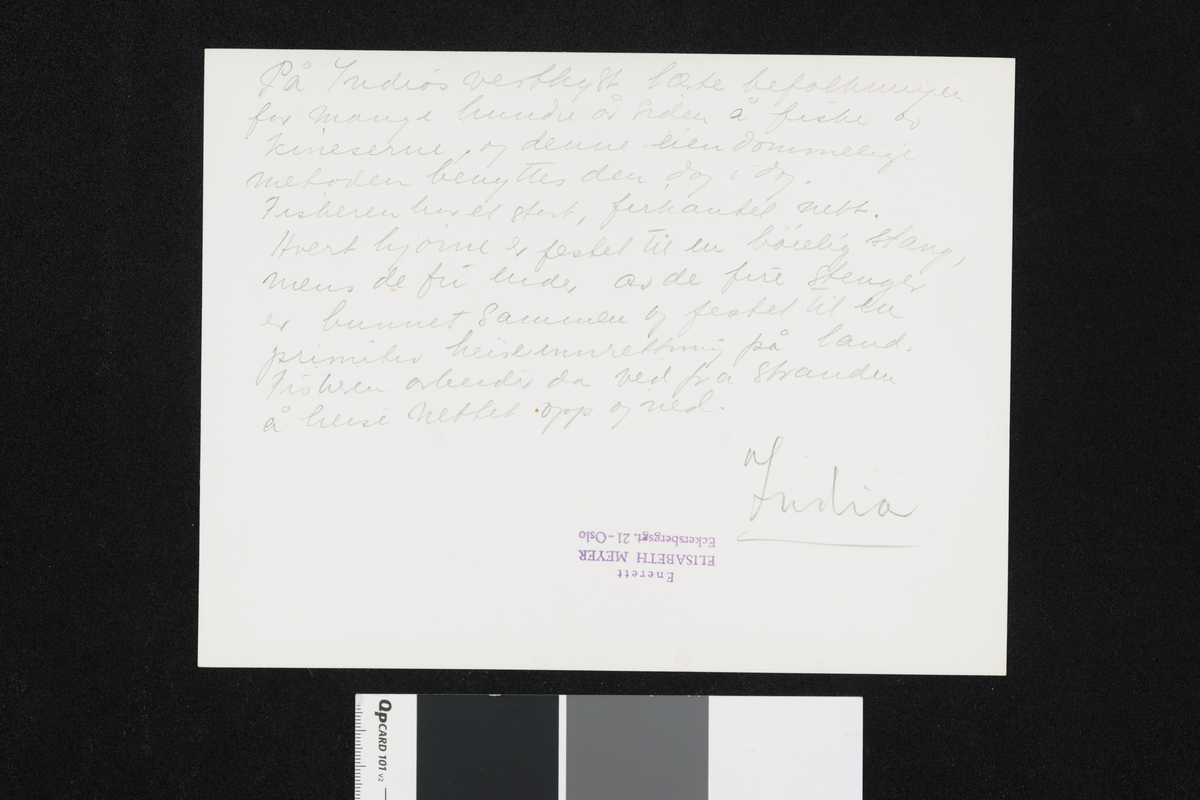 På Indias vestkyst lærte befolkningen
for mange hundre år siden å fiske av
kineserne, og denne eiendommelige
metoden benyttes den dag i dag.
Fiskeren har et stort, firkantet nett.
Hvert hjørne er festet til en bøielig stang,
mens de fri ender av de fire stenger
er bunnet sammen og festet til en
primitiv heiseinnretning på land.
Fiskeren arbeider da ved fra stranden
å heise nettet opp og ned.
India
Enerett
ELISABETH MEYER
Eckersbergsgt. 21 - Oslo
QPCARD 101 v2